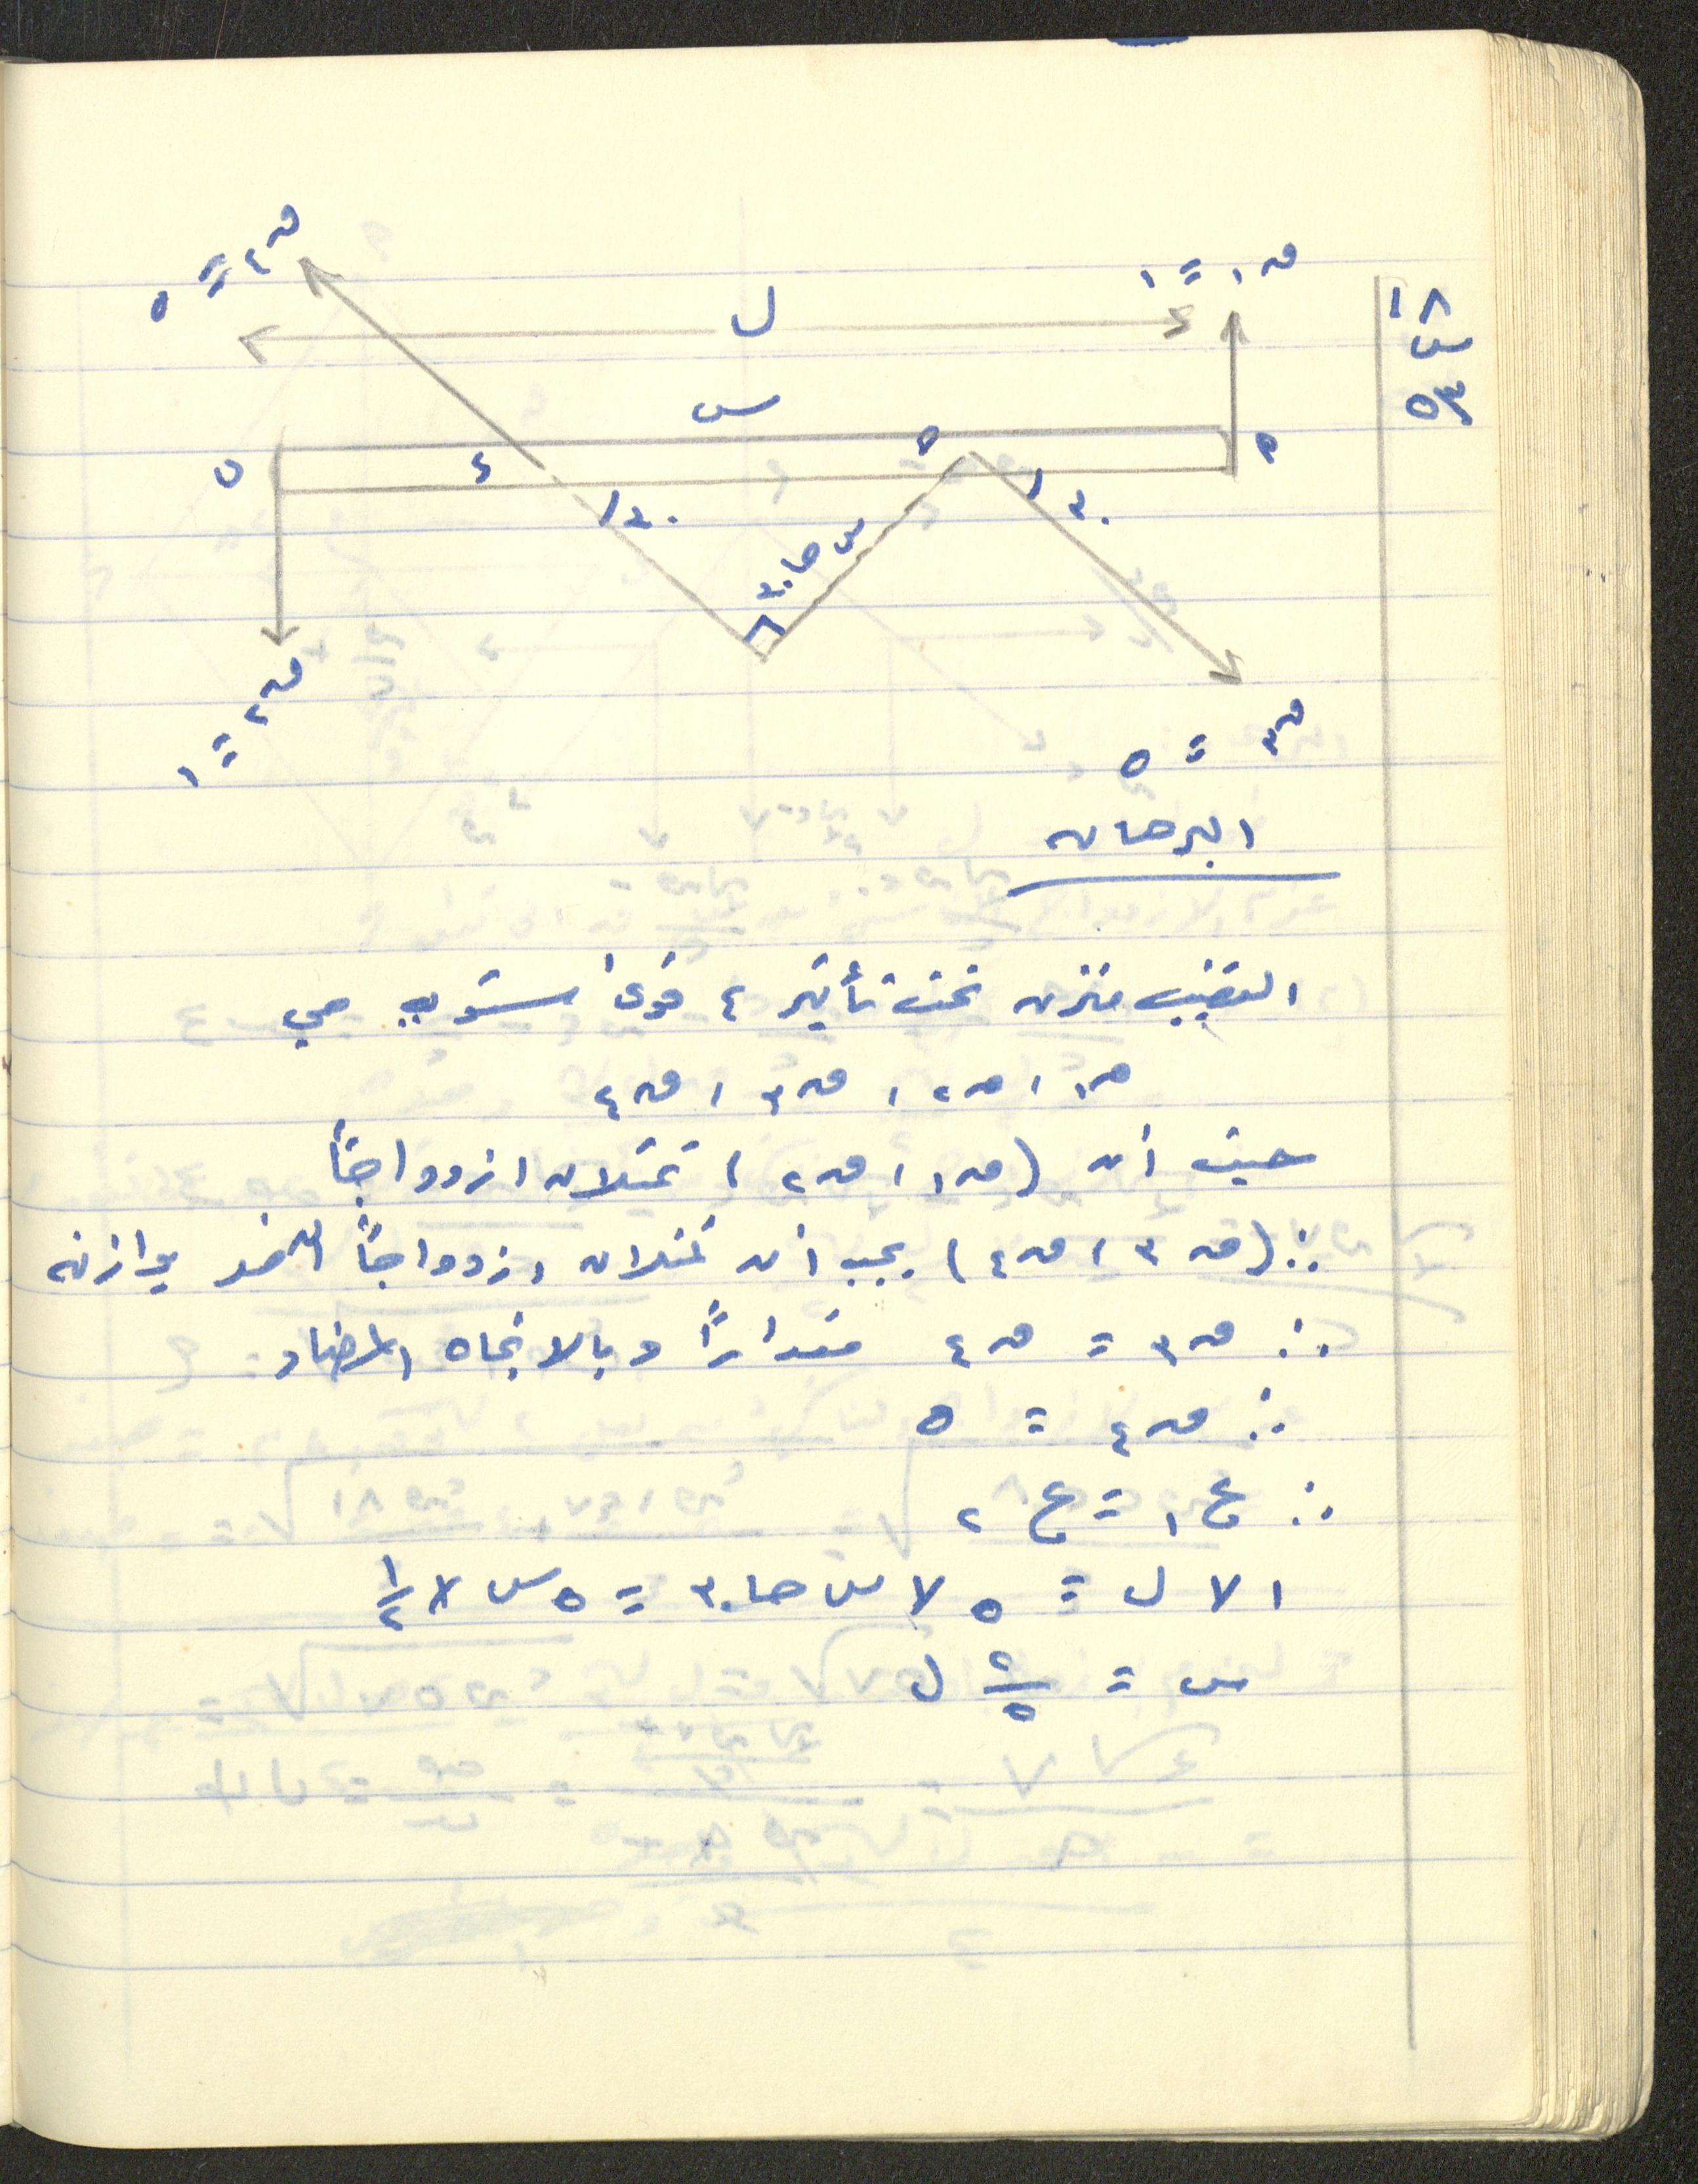 ١٨
س
٥٣
ق١ = ١
ق٤ = ٥
ل
س
م
ب
ء
٣٠
٣٠
س حا ٣٠
ق٢ = ١
ق٣ = ٥
البرهان
القضيب متزن تحت تأثير ٤ قوى مستوية هي
ق١ ، ق٢ ، ق٣ ، ق٤
حيث أن (ق١ ، ق٢) تمثلان ازدواجاً
∴ (ق٣ ، ق٤) يجب أن تمثلان ازدواجاً يوازنه
∴ ق٣ = ق٤ مقداراً وبالاتجاه المضاد
∴ ق٤ = ٥
∴ ع١ = ع٢
١ × ل = ٥ × س حا ٣٠ = ٥ س × ١/٢
س = ٢/٥ ل